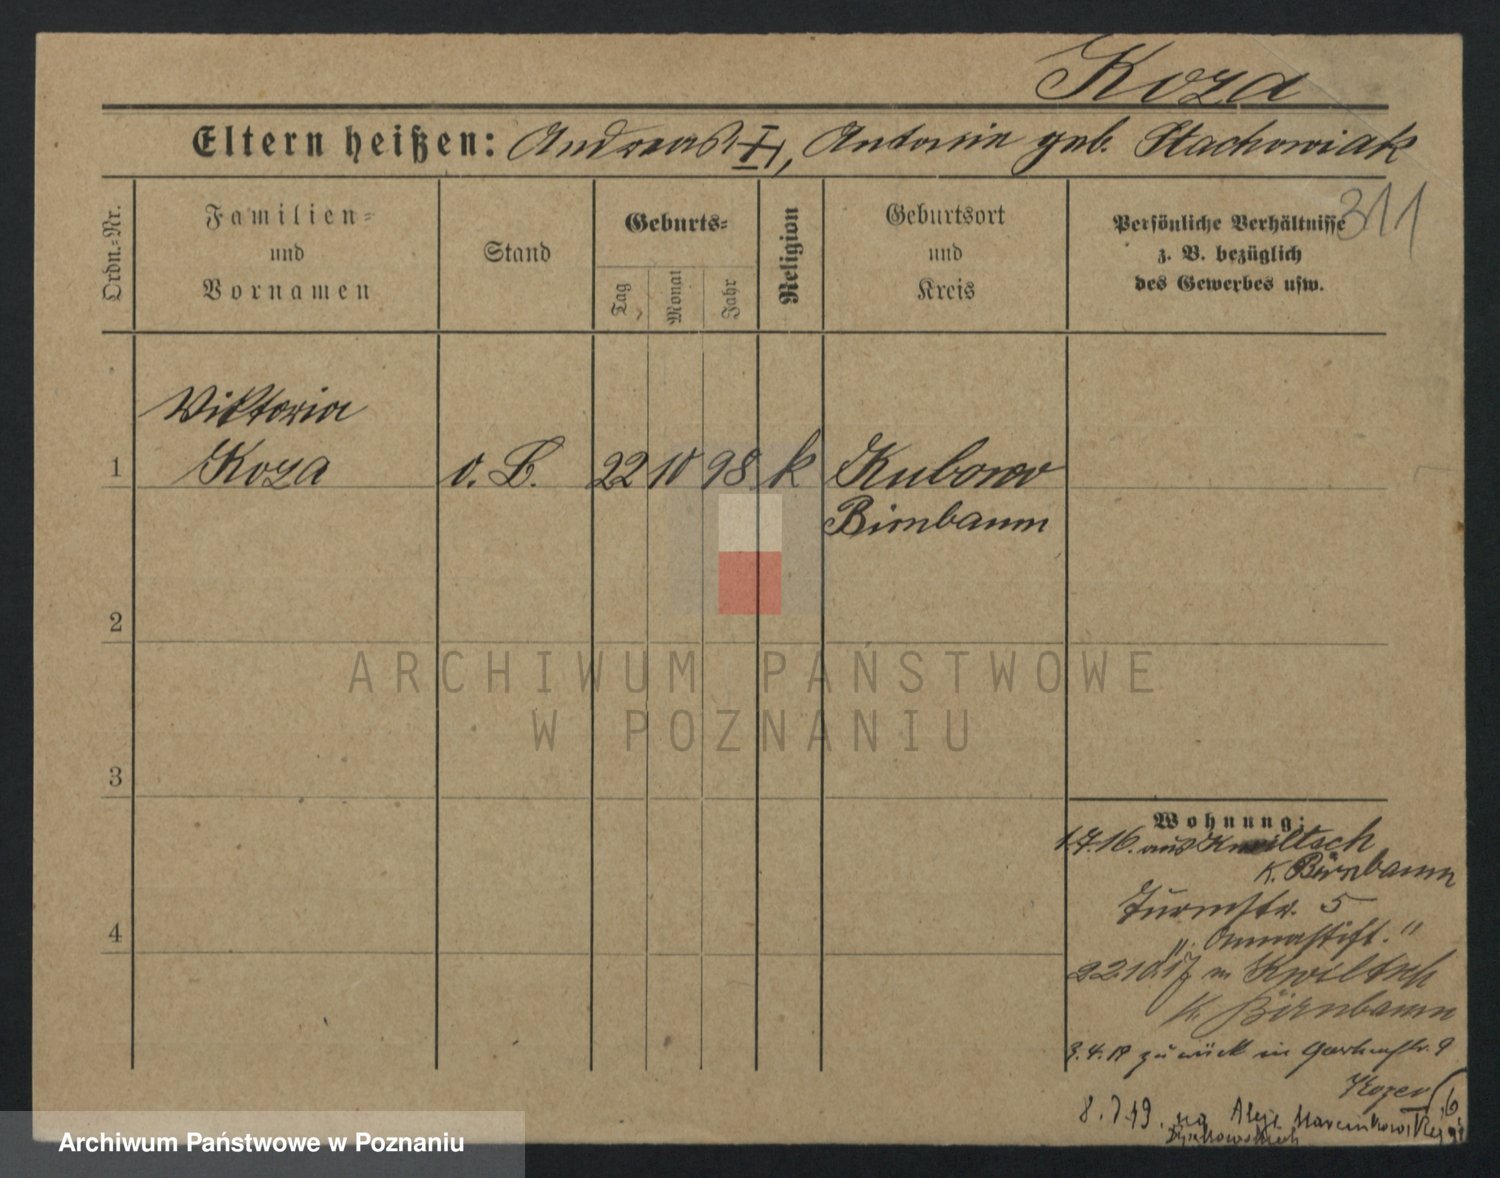 Koza
Eltern heißen: Andreas, Antonie geb. Stachowiak
311
Ordn.-Nr.
Familien-
und
Vornamen
Stand
Geburts-
Tag
Monat
Jahr
Religion
Geburtsort
und
Kreis
Persönliche Verhältnisse
z. B. bezüglich
des Gewerbes usw.
Viktoria
1 Koza o. B. 22 10 98 k Kubowo
Birnbaum
2
ARCHIWUM PAŃSTWOWE
W POZNANIU
3
Wohnung:
1.7.16. aus Kwiltsch
K. Birnbaum
4
Turmstr. 5
„Annastift.“
22.10.17 n Kwiltsch
K. Birnbaum
3.4.19 zurück in Gartenstr. 9
8.7.19. na Aleje Marcinkowsk
Archiwum Państwowe w Poznaniu